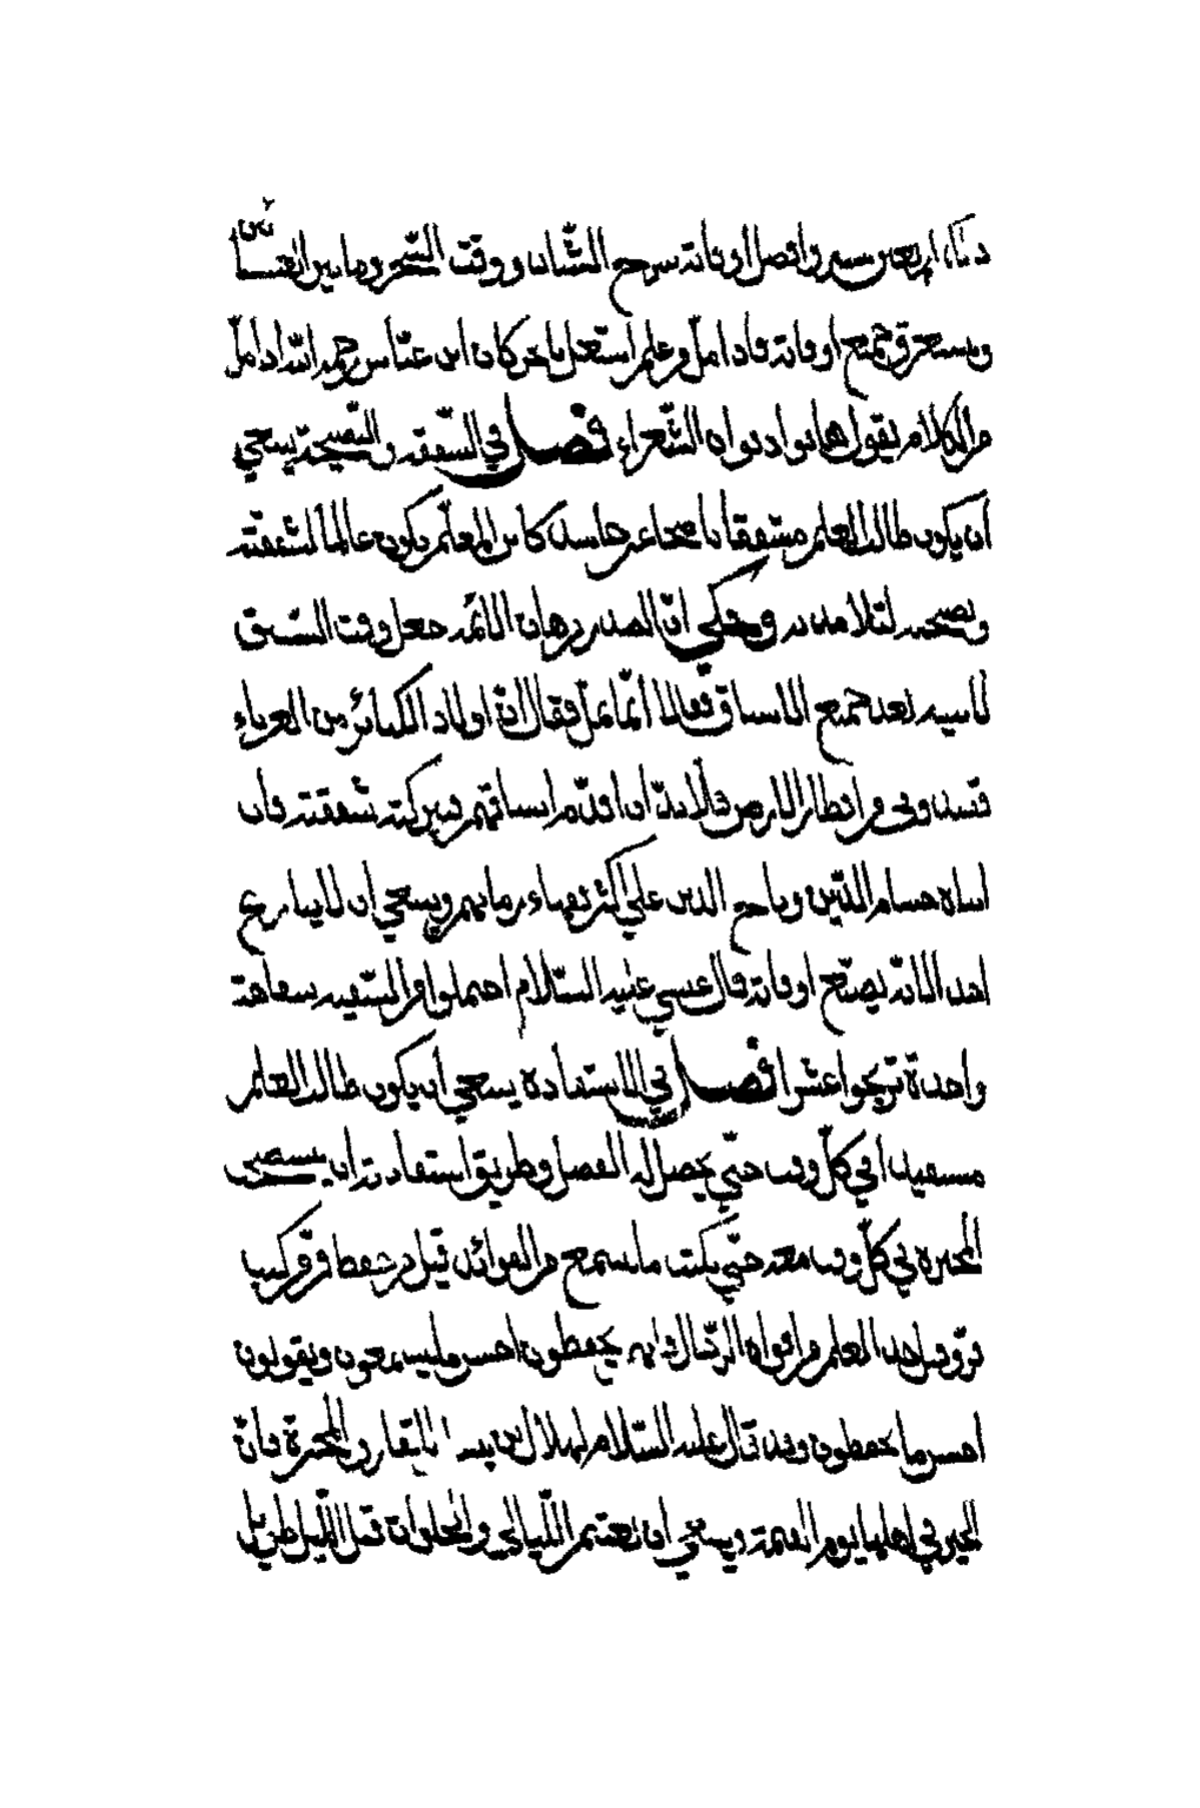 ذلك اربعين سنة وافضل اوقاته شرخ الشباب ووقت السحر وما بين العشائين
ويستغرق جميع اوقاته فاذا مل من علم اشتغل باخر كان ابن عباس رحمه الله اذا مل
من الكلام يقول هاتوا ديوان الشعراء فصل في الشفقة والنصيحة ينبغي
ان يكون طالب العلم مشفقا ناصحا غير حاسد كان المعلم يكون عالما لشفقته
ونصيحته لتلامذته وحكي ان الصدر برهان الائمة جعل وقت السبق
لابنيه بعد جميع الاسباق فقالا انما نمل فقال ان اولاد الكبائر من الغرباء
قدموني من اقطار الارض فلا بد ان اقدم اسباقهم فببركة شفقته فاق
ابناه حسام الدين وتاج الدين على اكثر فقهاء زمانهم وينبغي ان لا ينازع
احدا لانه يضيع اوقاته قال عيسى عليه السلام احتملوا من السفيه سفاهة
واحدة تربحوا عشرا فصل في الاستفادة ينبغي ان يكون طالب العلم
مستفيدا في كل وقت حتى يحصل له الفضل وطريق استفادته ان يستصحب
المحبرة في كل وقت معه حتى يكتب ما يسمع من الفوائد قيل من حفظ فر ومن كتب
قر وقيل خذ العلم من افواه الرجال فانهم يحفظون احسن ما يسمعون ويقولون
احسن ما يحفظون وقد قال عليه السلام لهلال بن يسار لا تفارق المحبرة فان
الخير في اهلها يوم القيمة وينبغي ان يغتنم الليالي والخلوات قيل الليل طويل